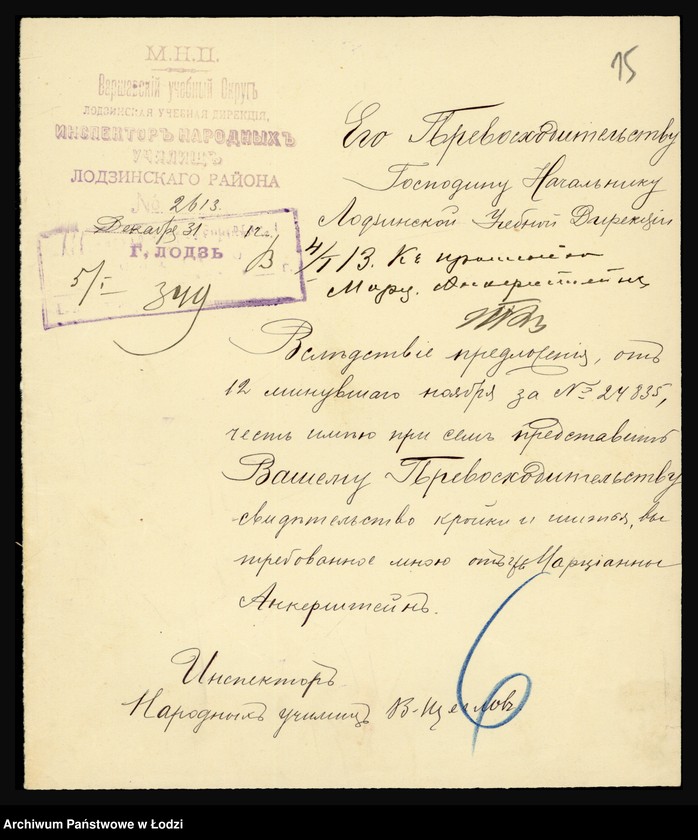 15
М.Н.П.
Варшавскій учебный Округъ
ЛОДЗИНСКАЯ УЧЕБНАЯ ДИРЕКЦІЯ,
ИНСПЕКТОРЪ НАРОДНЫХЪ
УЧИЛИЩЪ
ЛОДЗИНСКАГО РАЙОНА
№ 2613.
Декабря 31 12 г.
Г. ЛОДЗЬ
5/I 13 г.
Его Превосходительству
Господину Начальнику
Лодзинской Учебной Дирекціи
4/I 13. Къ прошенію
Марц. Анкерштейнъ
Вслѣдствіе предложенія, отъ
12 минувшаго ноября за № 24835,
честь имѣю при семъ представить
Вашему Превосходительству
свидѣтельство кройки и шитья, вы
требованное мною отъ Марціанны
Анкерштейнъ.
6
Инспекторъ
Народныхъ училищъ В. Щегловъ
Archiwum Państwowe w Łodzi